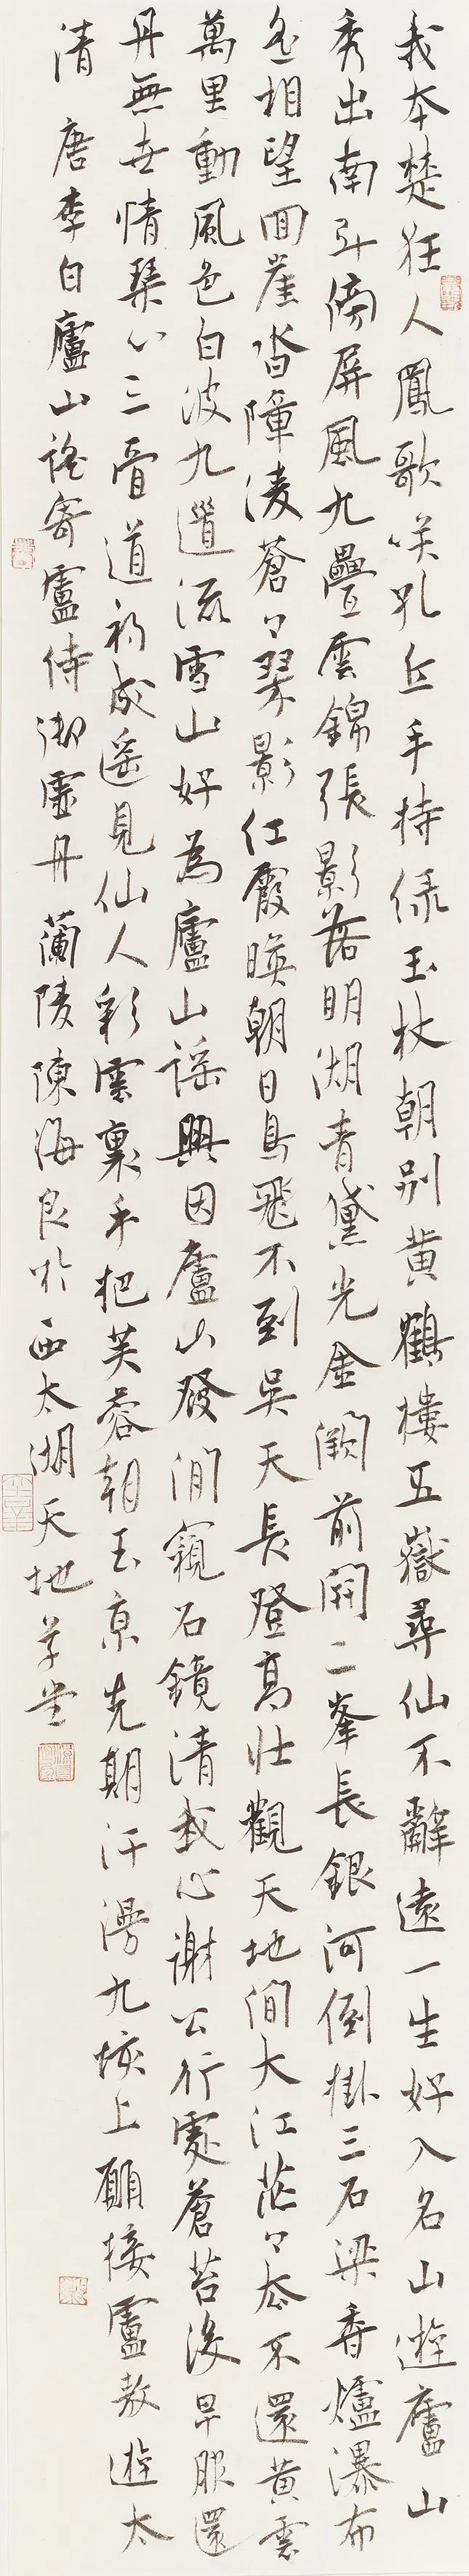 我本楚狂人鳳歌笑孔丘手持绿玉杖朝别黄鶴樓五嶽尋仙不辭遠一生好入名山遊廬山
秀出南斗傍屏風九疊雲錦張影落明湖青黛光金闕前開二峯長銀河倒掛三石梁香爐瀑布
遥相望回崖沓障淩蒼々翠影红霞暎朝日鳥飛不到吳天長登高壮觀天地間大江茫々去不還黄雲
萬里動風色白波九道流雪山好為廬山謡興因廬山發閒窺石鏡清我心謝公行處蒼苔没早服還
丹無世情琴心三疊道初成遥見仙人彩雲裏手把芙蓉朝玉京先期汗漫九垓上願接盧敖遊太
清 唐李白廬山謡寄盧侍御虚舟 蘭陵陳海良於西太湖天地草堂